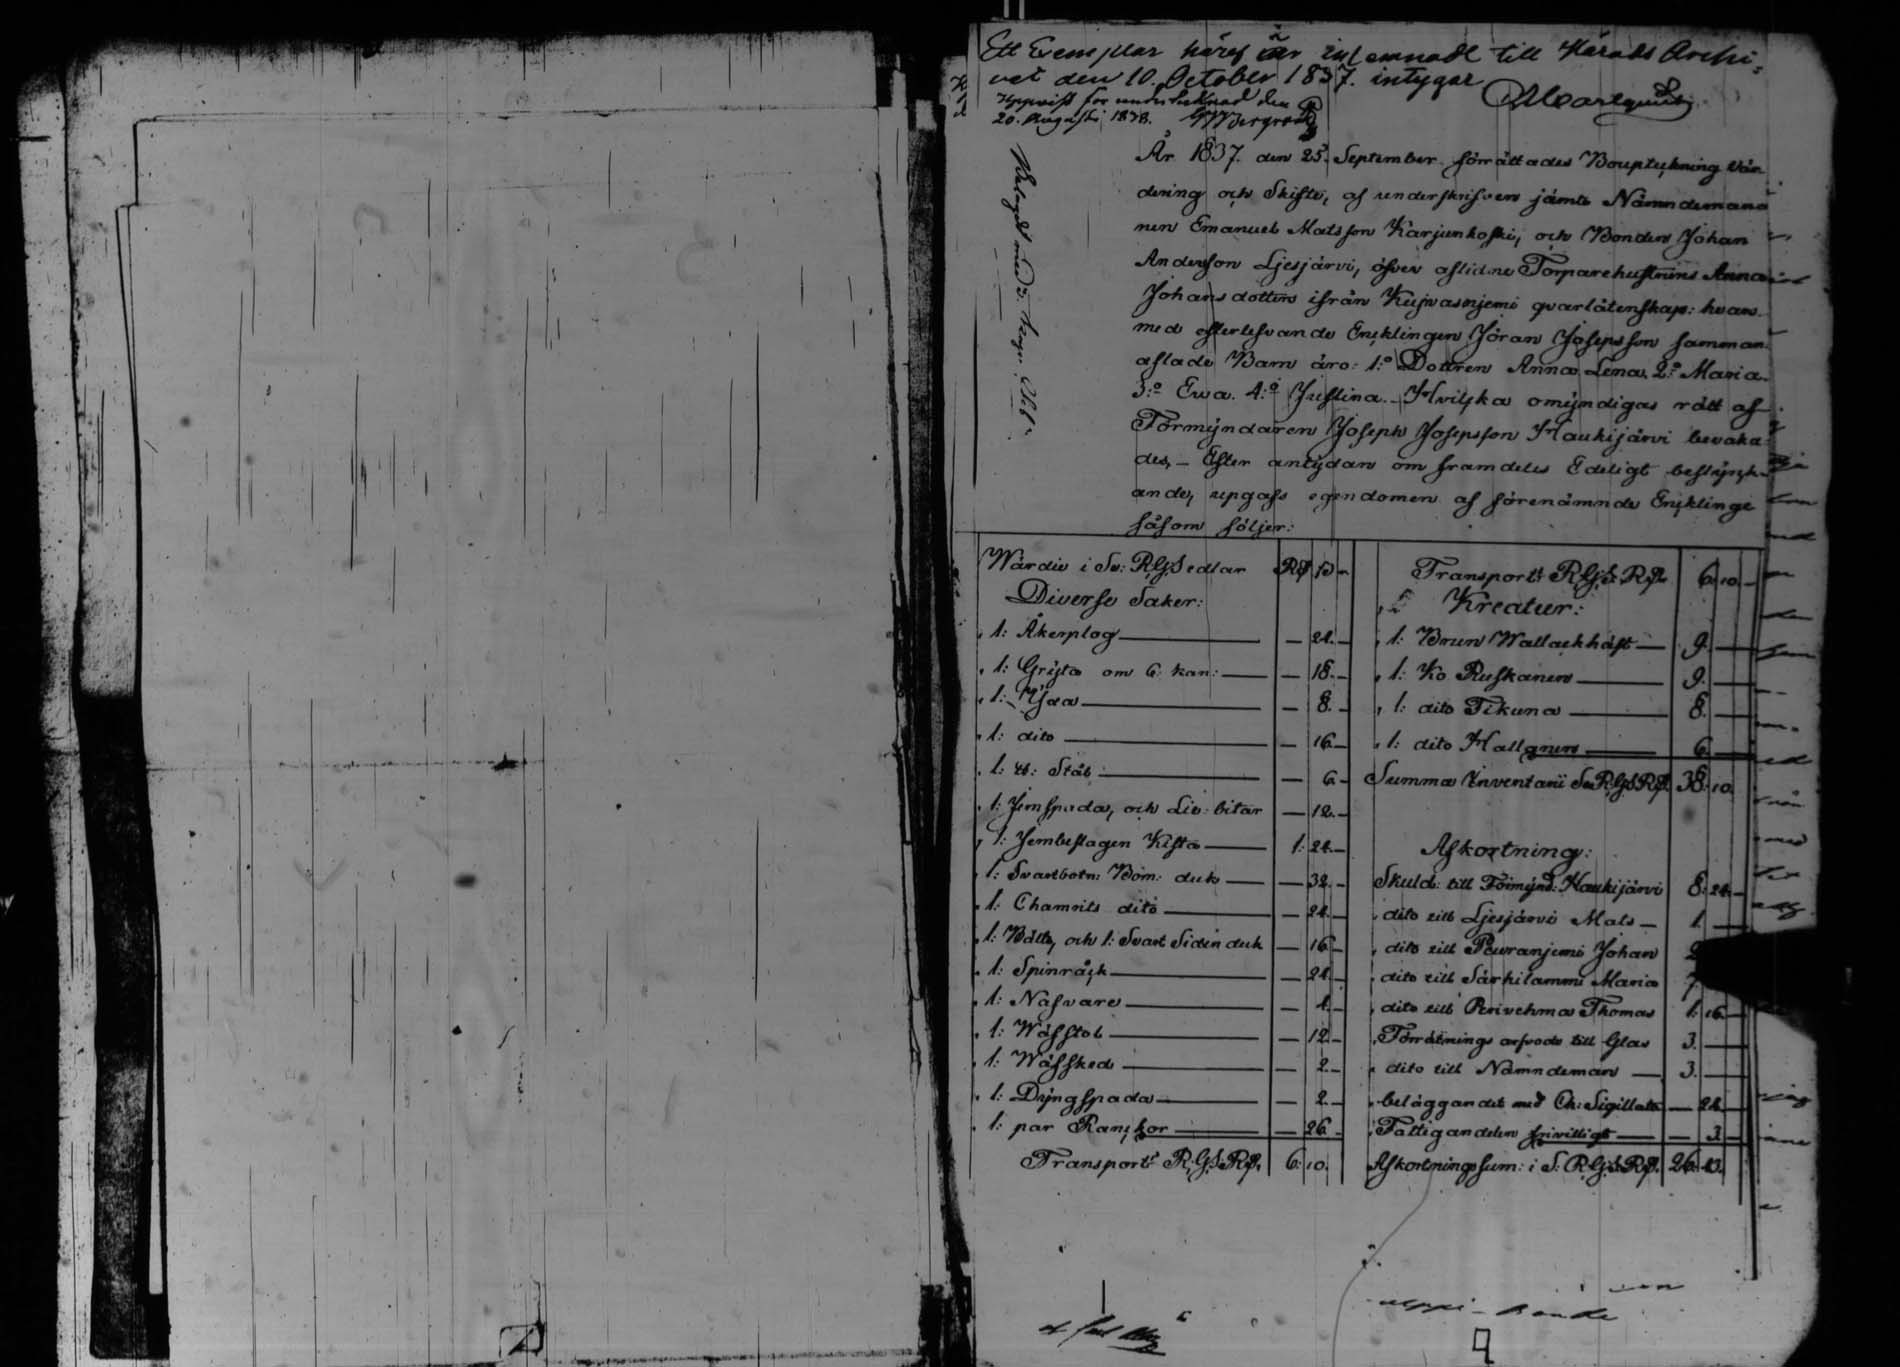 Ett Exemplar häraf är inlemnadt till Härads Archi-
vet den 10. October 1837. intygar
Uppvist for undertecknad den
20. Augusti 1838.
Belagdt med
År 1837. den 25. September förrättades Boupteckning Vär-
dering och Skifte, af underskrifven jämte Nämndeman-
nen Emanuel Matsson Karjunkoski, och Bonden Johan
Andersson Ljesjärvi, öfver aflidne Torparehustruns Anna
Johansdotters ifrån Kujvasnjemi qvarlåtenskap: hvar-
med efterlefvande Encklingen Jöran Josepsson samman-
aflade Barn äro: 1:o Dottren Anna Lena. 2:o Maria.
3:o Ewa. 4:o Justina. Hvilka omyndigas rätt af
Förmyndaren Joseph Josepsson Haukijärvi bevaka-
des,- Efter antydan om framdeles Edeligt bestyrck-
ande, upgafs egendomen af förenämnde Encklinge
såsom följer:
Wärdie i Sv: R.G.Sedlar Rd s -
Diverse Saker:
1: Åkerplog — 24. -
1: Gryta om 6 kan: — 18. -
1: Yxa — 8. -
1: dito — 16. -
1: Stål — 6 -
1: Jernspada, och Lie: bitar — 12. -
1: Jernbeslagen Kista 1: 24. -
1: Svartbotn: Bom: duk — 32. -
1: Chamrits dito — 24. -
1: Bälte, och 1: Svart Siden duk — 16 -
1: Spinråck — 24. -
1: Nafvare — 4. -
1: Wäfstol — 12. -
1: Wäfsked — 2. -
1: Dyngspada — 2. -
1: par Ranckor — 26. -
Transport: R.G.S. Rd. 6. 10.
Transport: R.G.S. Rd. 6. 10. -
Kreatur:
1: Brun Wallackhäst 9. —
1: Ko Ruskanen 9. —
1: dito Tikuna 8. —
1: dito Hallanen 6. —
Summa Inventarii Sv R.G.S Rd. 38. 10.
Afkortning:
Skuld: till Förmynd: Haukijärvi 8: 24. -
dito till Ljesjärvi Mats 1. —
dito till Pauranjemi Johan 2
dito till Särkilammi Maria 7.
dito till Perivehma Thomas 1: 16. -
Förrätnings arfvode till Glas 3. —
dito till Nämndeman 3. —
beläggandet med Ch: Sigillata — 24. -
Fattigandelen frivilligt — 3. -
Afkortningssum: i S: R.G.S. Rd. 26.